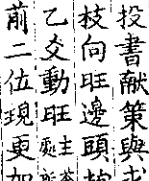 投書献策與
枝向旺邊頭
乙爻動旺
前二位現更加